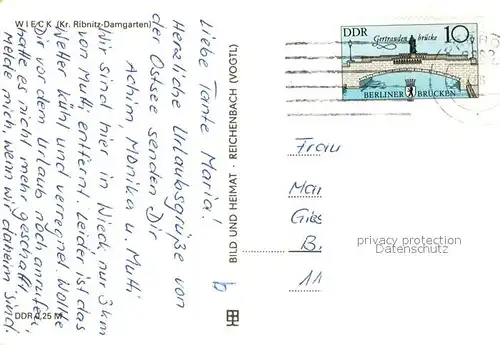 WIECK (Kr. Ribnitz-Damgarten)
Liebe Tante Maria!
Herzliche Urlaubsgrüße von
der Ostsee senden Dir
Achim, Monika u. Mutti
Wir sind hier in Wieck nur 3 km
von Mutti entfernt. Leider ist das
Wetter kühl und verregnet. Wollte
Dir vor dem Urlaub noch anrufen,
hatte es nicht mehr geschafft.
Melde mich, wenn wir daheim sind.
DDR 0,25 M
BILD UND HEIMAT · REICHENBACH (VOGTL)
DDR 10
Gertraudenbrücke
BERLINER BRÜCKEN
Frau
Mar
Gies
B.
11
privacy protection
Datenschutz